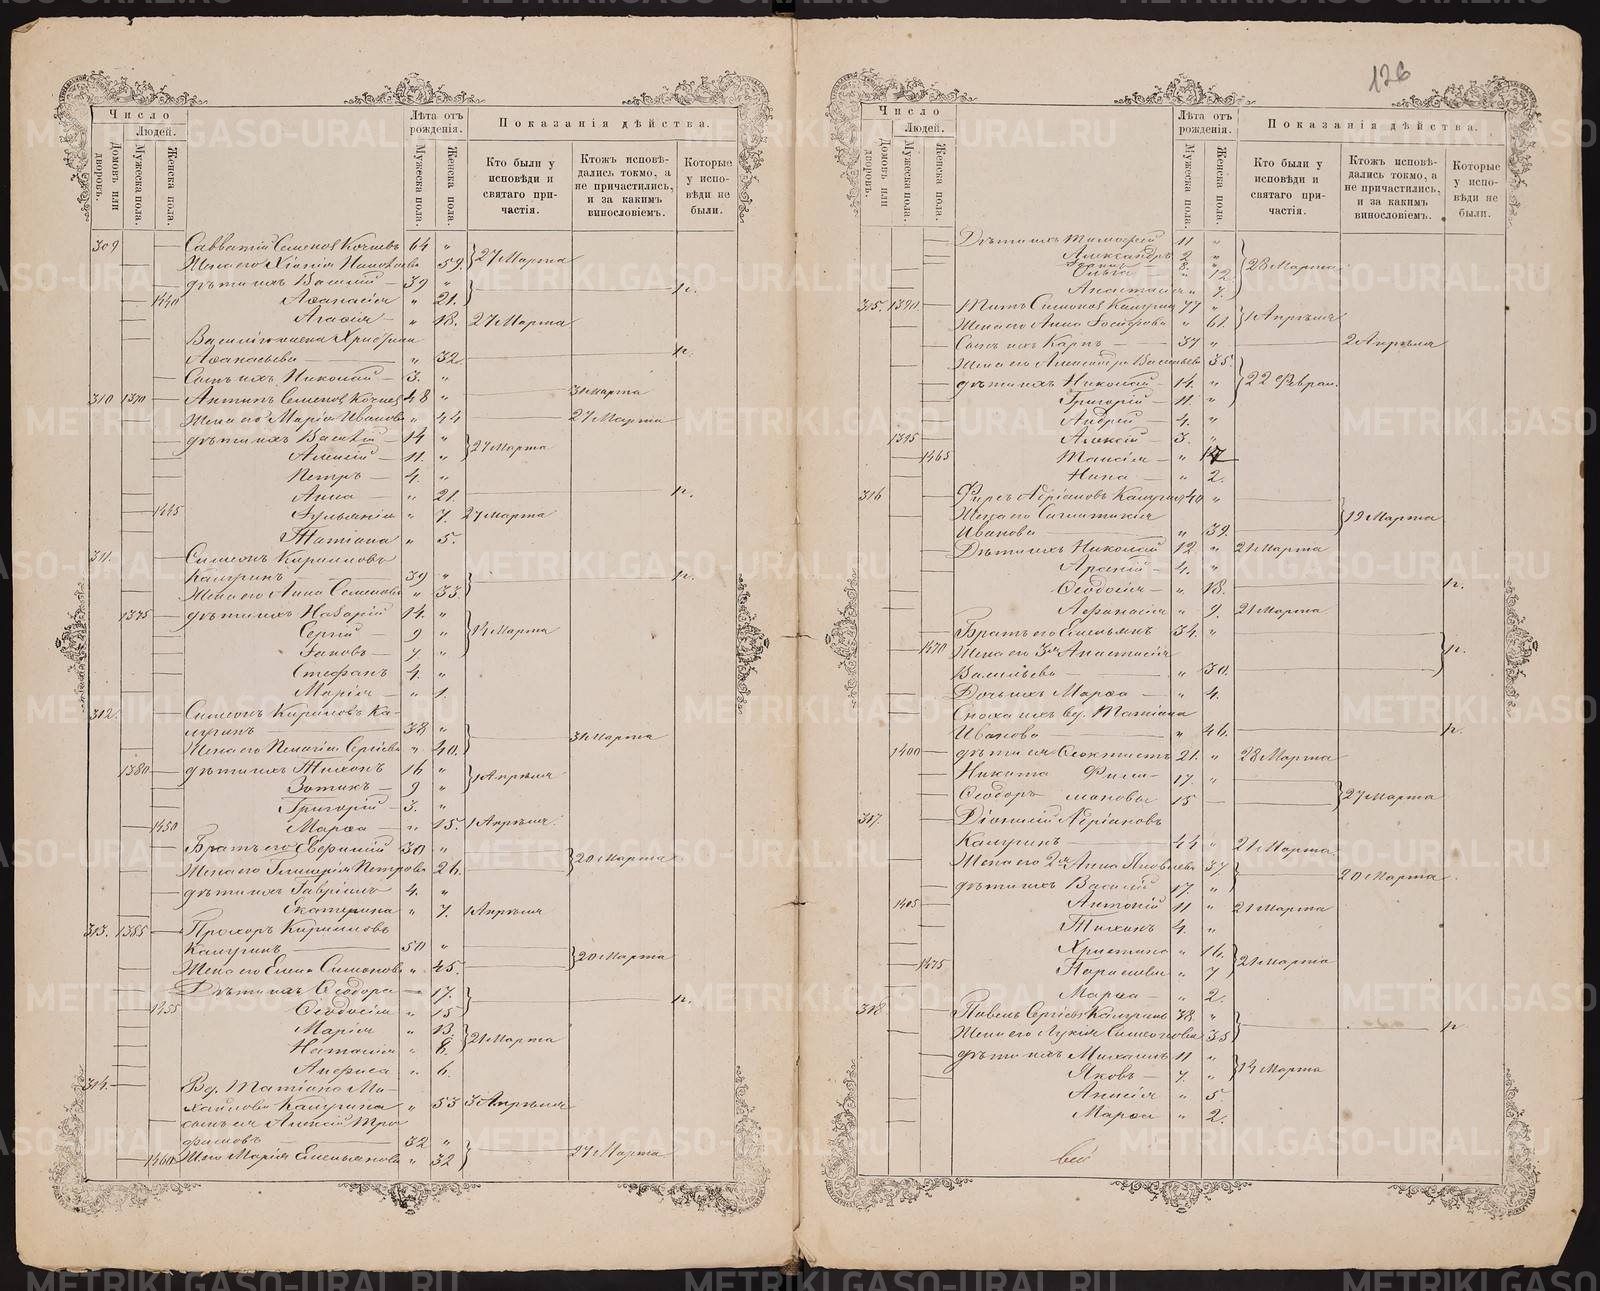 126
Число
Людей.
Домовъ или дворовъ.
Мужеска пола.
Женска пола.
Лѣта отъ рожденія.
Мужеска пола.
Женска пола.
Показанія дѣйства.
Кто были у исповѣди и святаго причастія.
Ктожъ исповѣдались токмо, а не причастились, и за какимъ винословіемъ.
Которые у исповѣди не были.
309 Савватій Семеновъ 64 "
Жена его 59. 27 Марта
дѣти ихъ Василій 39 "
1440 Афанасія " 21. н.
Агафія " 18. 27 Марта
Василія жена
Афанасьева " 32. н.
Сынъ ихъ Николай 3. "
310 1370 Антипъ Семеновъ 48 " 31 марта
Жена его Марія Иванова " 44 27 Марта
дѣти ихъ Василій 14 "
Алексій 11. " 27 Марта
Петръ 4. "
Анна " 21. н.
1445 Іульянія " 7. 27 Марта
Татіана " 5.
311. Симеонъ Кирилловъ
39 " н.
Жена его Анна Семенова " 33.
1375 дѣти ихъ Назарій 14. "
Сергій 9 " 14 Марта
Іаковъ 7 "
Стефанъ 4. "
Марія " 1.
312. Симеонъ Кириловъ Ка-
38 "
Жена его Пелагія Сергіева " 40. 31 Марта
1380 дѣти ихъ Тихонъ 16 "
Зотикъ 9 " 1 Апрѣля
Григорій 3. "
1450 Марфа " 15. 1 Апрѣля
Братъ его Евфимій 30 "
Жена его Петрова 26. 20 Марта
дѣти ихъ Гавріилъ 4. "
Екатерина " 7. 1 Апрѣля
313. 1385 Прохоръ Кирилловъ
50 "
Жена его Елена Симонова " 45. 20 Марта
Дѣти ихъ Феодора 17.
1455 Феодосія " 15 н.
Марія " 13.
Наталія " 8. 21 Марта
Анфиса " 6.
314. Вд. Татіана Ми-
хайлова " 53 3 Апрѣля
сынъ ея Алексій Тро-
фимовъ 32 "
1460 Жена Марія Емельянова " 32 27 Марта
Число
Людей.
Домовъ или дворовъ.
Мужеска пола.
Женска пола.
Лѣта отъ рожденія.
Мужеска пола.
Женска пола.
Показанія дѣйства.
Кто были у исповѣди и святаго причастія.
Ктожъ исповѣдались токмо, а не причастились, и за какимъ винословіемъ.
Которые у исповѣди не были.
Дѣти ихъ Тимофей 11 "
Александръ 2 "
Ольга " 12. 28 Марта
Анастасія " 7.
315. 1390. Титъ Симоновъ 77 "
Жена его Анна " 61. 1 Апрѣля
Сынъ ихъ Карпъ 37 " 2 Апрѣля
Жена его Александра Васильева 35.
дѣти ихъ Николай 14. " 22 Феврал.
Григорій 11. "
Андрей 4. "
1395 Алексій 3. "
1465 Таисія "
Нина " 2.
316 Фирсъ Адріановъ 40 "
Жена его
Иванова " 39. 19 Марта
Дѣти ихъ Николай 12. " 21 Марта
Арсеній 4. "
Феодосія " 18. н.
Афанасія " 9. 21 Марта
Братъ его Емельянъ 34. "
1470 Жена его 3я Анастасія
Васильева " 30. н.
Дочь ихъ Марфа " 4.
Сноха ихъ вд. Татіана
Иванова " 46. н.
1400 дѣти ея Феоктистъ 21. " 28 Марта
Никита Фили- 17. "
Феодоръ моновы 15 27 Марта
317. Діонисій Адріановъ
44 " 21 Марта
Жена его 2я Анна Яковлева 37.
дѣти ихъ Василій 17. " 20 Марта
1405 Антоній 11 " 21 Марта
Тихонъ 4. "
Христина " 16.
1475 Параскева " 7 21 Марта
Марфа " 2.
318 Павелъ Сергіевъ 38. "
Жена его Лукія Симеонова 35 н
дѣти ихъ Михаилъ 11 "
Яковъ 7. " 14 Марта
Анисія " 5
Марфа " 2.
METRIKI.GASO-URAL.RU